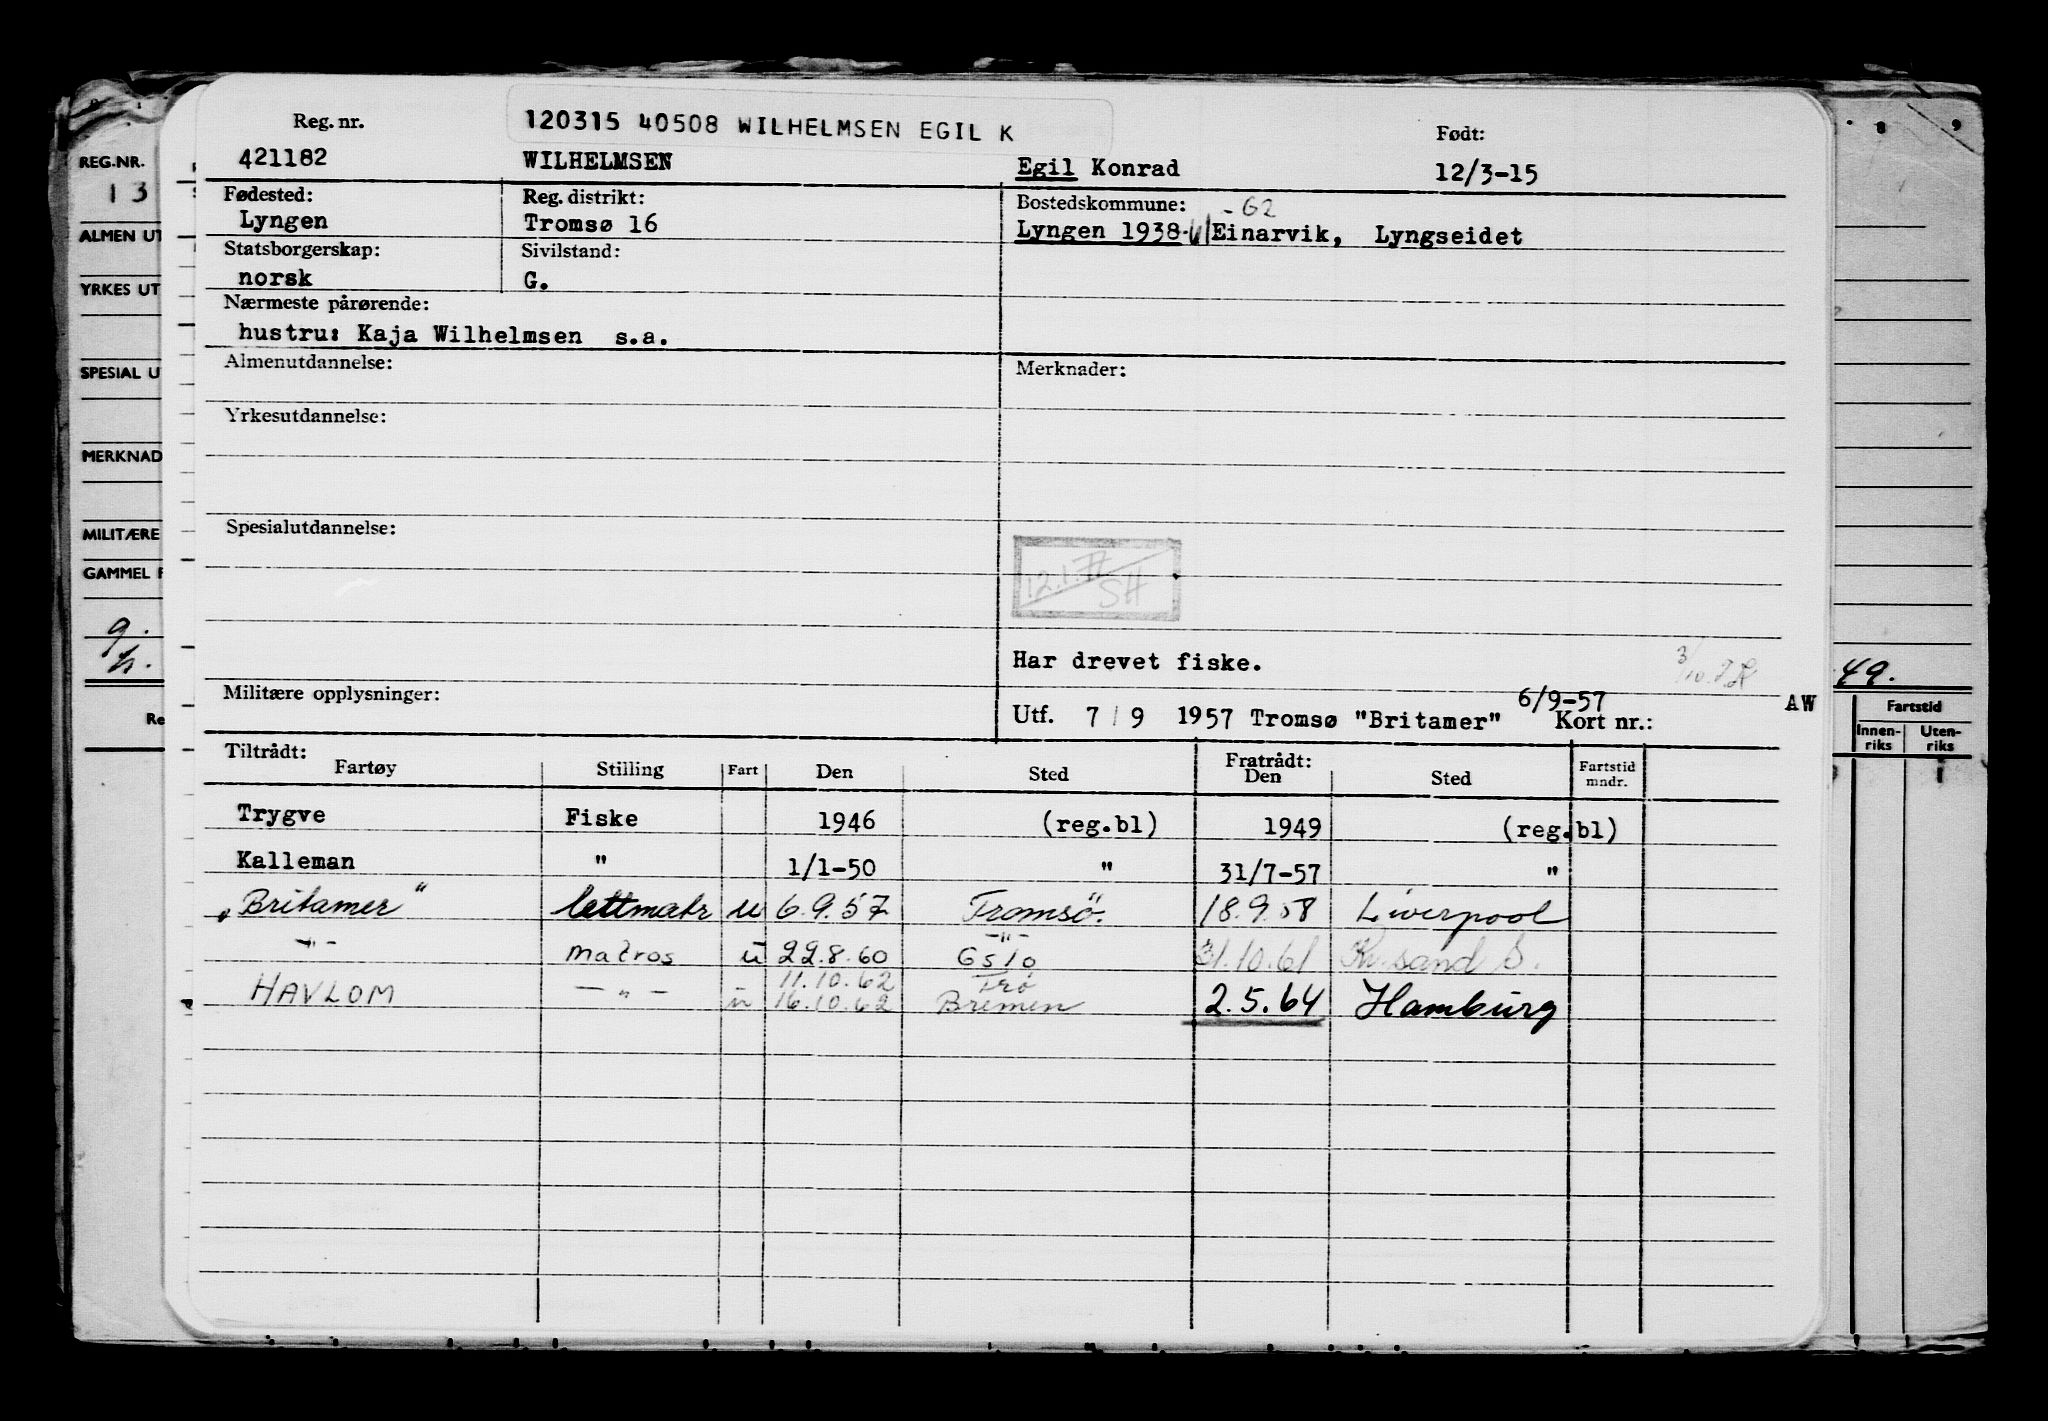 Reg. nr. 120315 40508 WILHELMSEN EGIL K Født:
421182 WILHELMSEN Egil Konrad 12/3-15
Fødested: Reg. distrikt: Bostedskommune: -62
Lyngen Tromsø 16 Lyngen 1938-61 Einarvik, Lyngseidet
Statsborgerskap: Sivilstand:
norsk G.
Nærmeste pårørende:
hustru: Kaja Wilhelmsen s.a.
Almenutdannelse: Merknader:
Yrkesutdannelse:
Spesialutdannelse:
12.1.77
SH
Har drevet fiske.
Militære opplysninger: 6/9-57 AW
Utf. 7/9 1957 Tromsø "Britamer" Kort nr.:
Tiltrådt: Fratrådt:
Fartøy Stilling Fart Den Sted Den Sted Fartstid mndr.
Trygve Fiske 1946 (reg.bl) 1949 (reg.bl)
Kalleman " 1/1-50 " 31/7-57 "
"Britamer" lettmatr u 6.9.57 Tromsø. 18.9.58 Liverpool
-"- matros u 22.8.60 -"- Oslo 31.10.61 Kr.sand S.
11.10.62 Trø
HAVLOM -"- u 16.10.62 Bremen 2.5.64 Hamburg
REG.NR.
13
ALMEN UT
YRKES UT
SPESIAL U
MERKNAD
MILITÆRE
GAMMEL F
9.
h.
Re
8 9
49.
Fartstid
Innen-riks Uten-riks
1